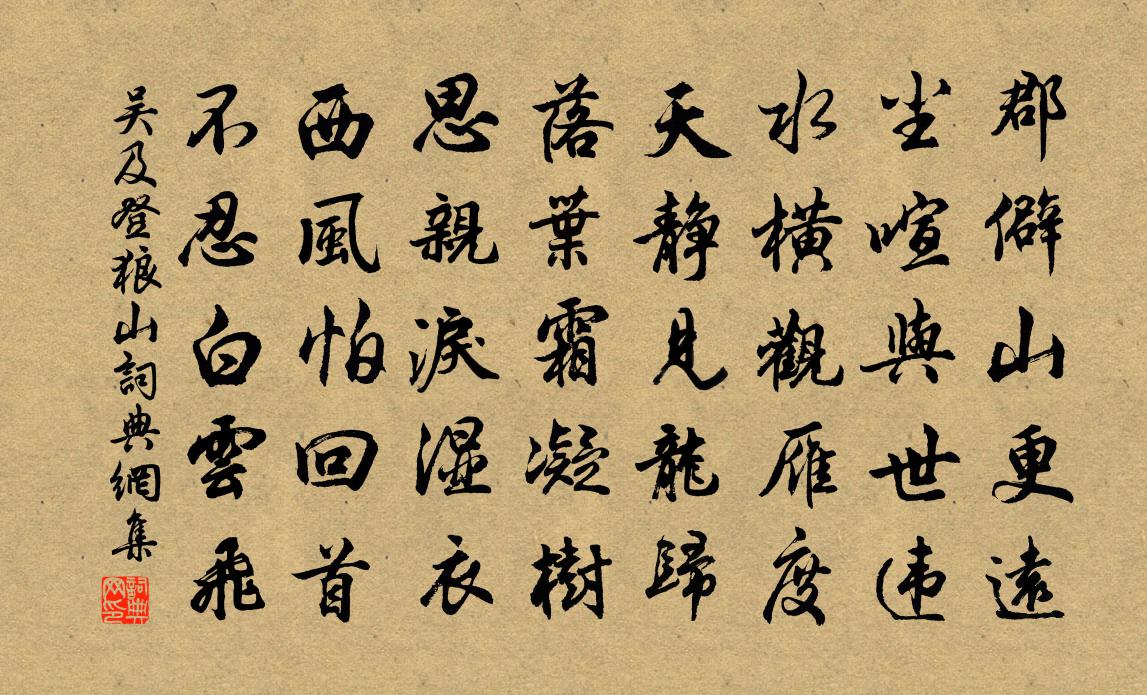 郡僻山更遠
尘喧與世违
水橫觀雁度
天静見龍歸
落葉霜凝樹
思親淚湿衣
西風怕回首
不忍白雲飛
吴及登狼山詞典網集
詞典网印